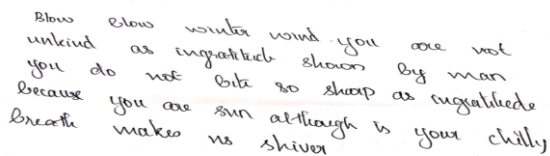 Blow Blow winter wind you are not
unkind as ingratitude shown by man
you do not bite so sharp as ingratitude
because you are sun although is your chilly
breath makes us shiver